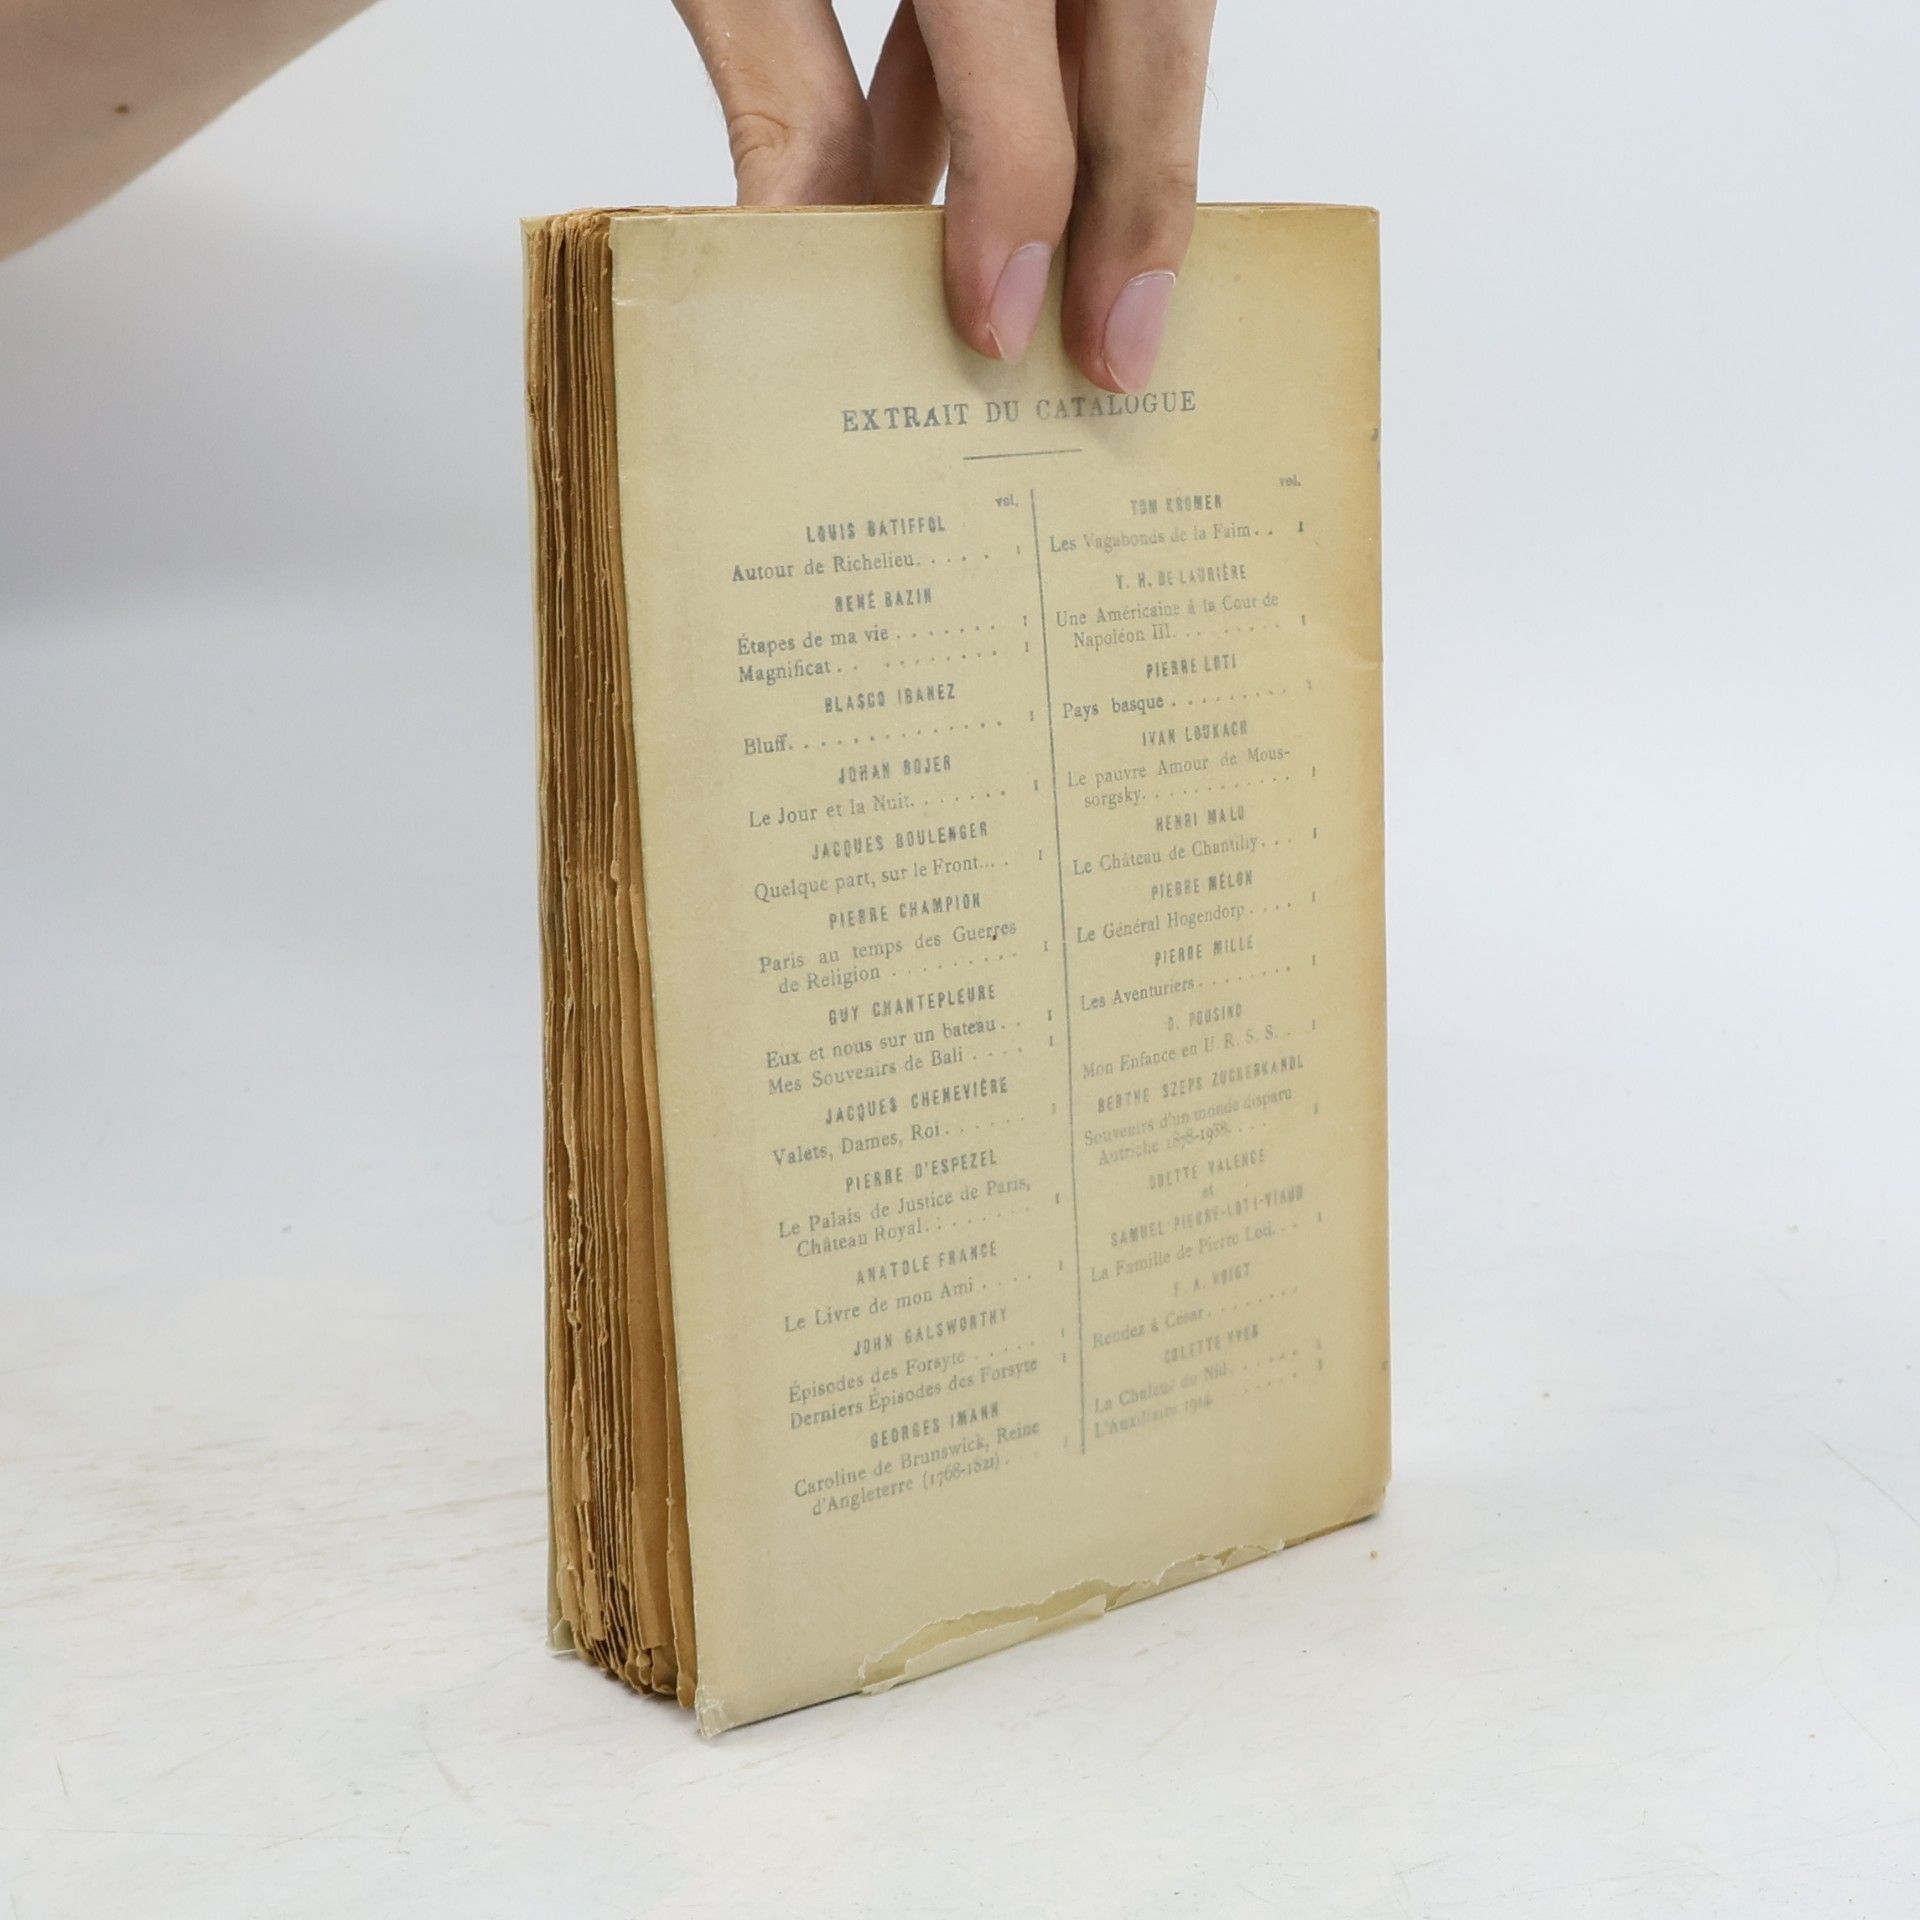 EXTRAIT DU CATALOGUE
vol.
LOUIS BATIFFOL
Autour de Richelieu. . . . . 1
RENÉ BAZIN
Étapes de ma vie . . . . . . . 1
Magnificat . . . . . . . . . . 1
BLASCO IBANEZ
Bluff. . . . . . . . . . . . . . 1
JOHAN BOJER
Le Jour et la Nuit. . . . . . . 1
JACQUES BOULENGER
Quelque part, sur le Front... . 1
PIERRE CHAMPION
Paris au temps des Guerres
de Religion . . . . . . . . . 1
GUY CHANTEPLEURE
Eux et nous sur un bateau. . 1
Mes Souvenirs de Bali . . . . 1
JACQUES CHENEVIÈRE
Valets, Dames, Roi. . . . . . 1
PIERRE D'ESPEZEL
Le Palais de Justice de Paris,
Château Royal. . . . . . . . 1
ANATOLE FRANCE
Le Livre de mon Ami . . . . 1
JOHN GALSWORTHY
Épisodes des Forsyte . . . . . 1
Derniers Épisodes des Forsyte 1
GEORGES IMANN
Caroline de Brunswick, Reine
d'Angleterre (1768-1821) . . . 1
vol.
TOM KROMER
Les Vagabonds de la Faim. . 1
Y. H. DE LAURIÈRE
Une Américaine à la Cour de
Napoléon III. . . . . . . . . 1
PIERRE LOTI
Pays basque . . . . . . . . . 1
IVAN LOUKACH
Le pauvre Amour de Mous-
sorgsky. . . . . . . . . . . . 1
HENRI MALO
Le Château de Chantilly. . . 1
PIERRE MÉLON
Le Général Hogendorp. . . . 1
PIERRE MILLE
Les Aventuriers. . . . . . . . 1
D. POUSINO
Mon Enfance en U. R. S. S. . 1
BERTHE SZEPS ZUCKERKANDL
Souvenirs d'un monde disparu
Autriche 1878-1938. . . . 1
ODETTE VALENCE
et
SAMUEL PIERRE-LOTI-VIAUD
La Famille de Pierre Loti. . . 1
F. A. VOIGT
Rendez à César. . . . . . . .
COLETTE YVER
La Chaleur du Nid. . . . . . 1
L'Auxiliaire 1914. . . . . . . 1